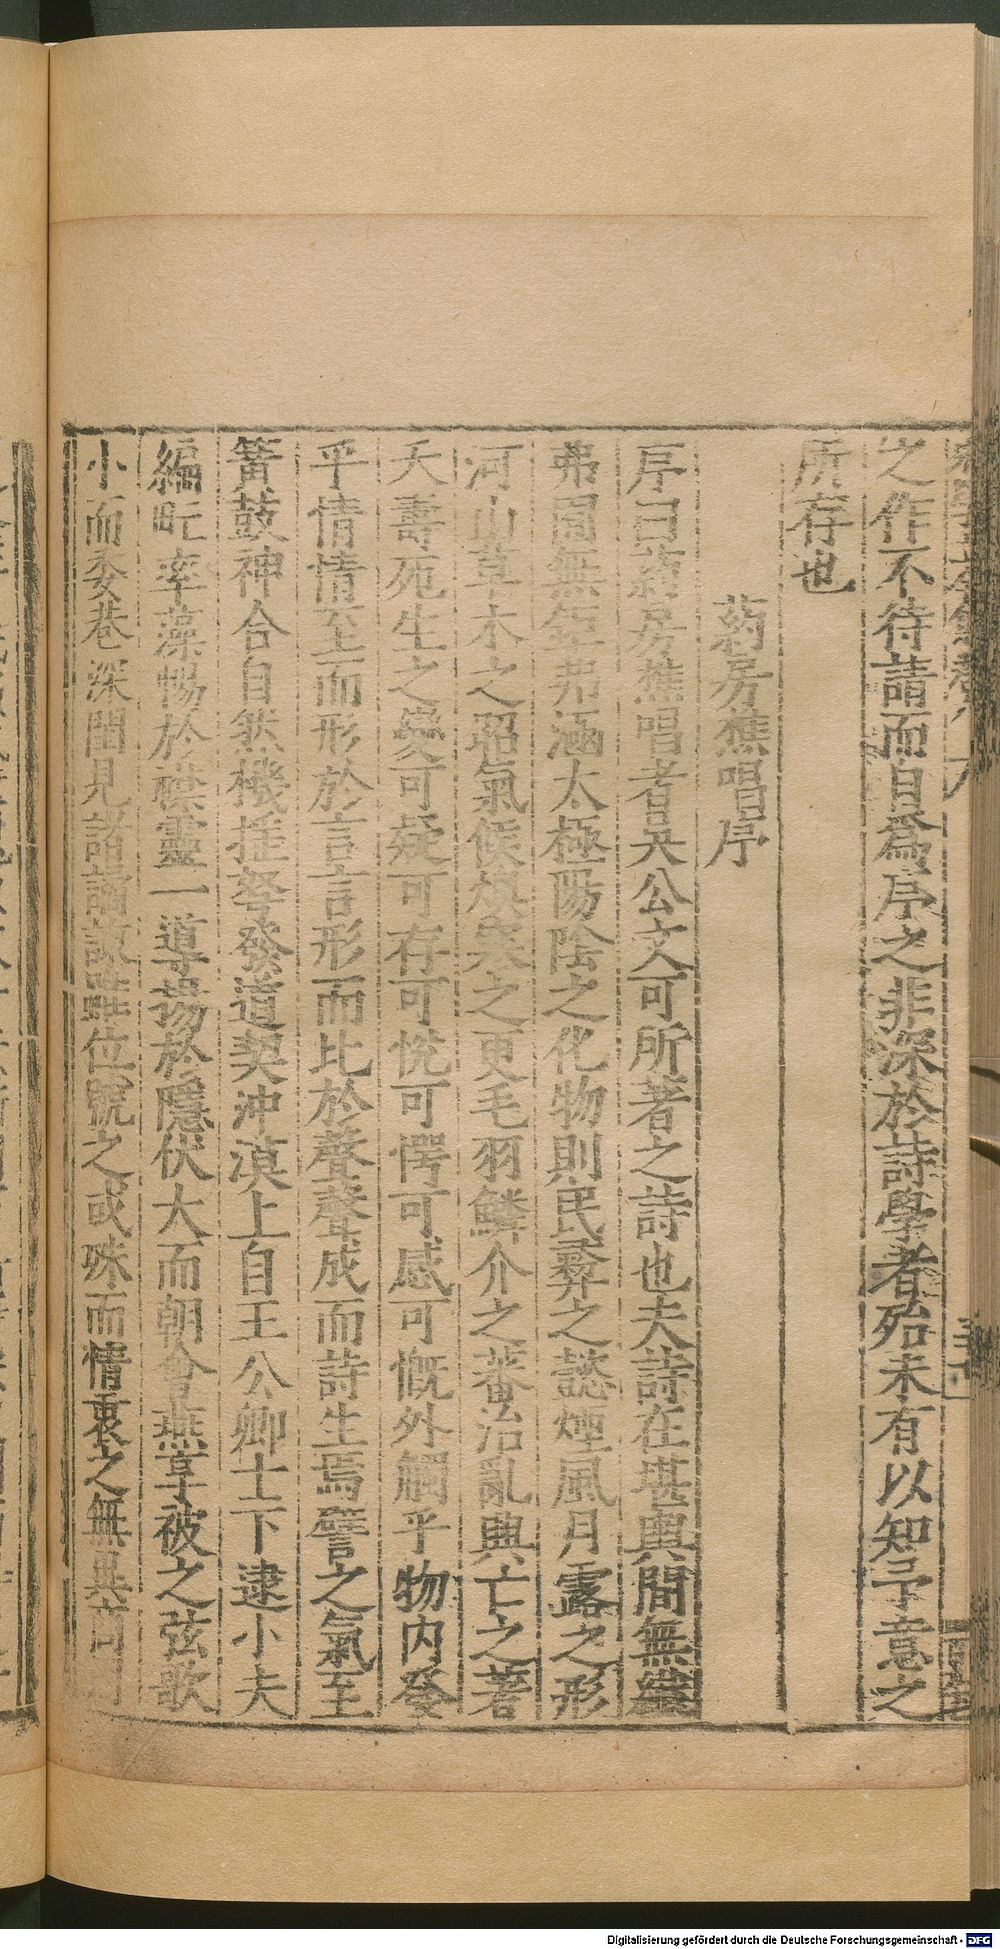 之作不待請而自爲序之非深於詩學者殆未有以知予意之
所存也
葯房樵唱序
序曰葯房樵唱者吳公文可所著之詩也夫詩在堪輿間無纖
弗固無鉅弗涵太極陽陰之化物則民彛之懿煙風月露之形
河山草木之昭氣候燠寒之更毛羽鱗介之蕃治亂興亡之著
夭壽死生之變可疑可存可悦可愕可感可慨外觸乎物内發
乎情情至而形於言言形而比於聲聲成而詩生焉譬之氣至
簧鼓神合自然機括弩發道契沖漠上自王公卿士下逮小夫
編甿率藻暢於襟靈一導揚於隱伏大而朝會燕享被之弦歌
小而委巷深閨見諸諷詠雖位號之或殊而情衷之無異
Digitalisierung gefördert durch die Deutsche Forschungsgemeinschaft - DFG